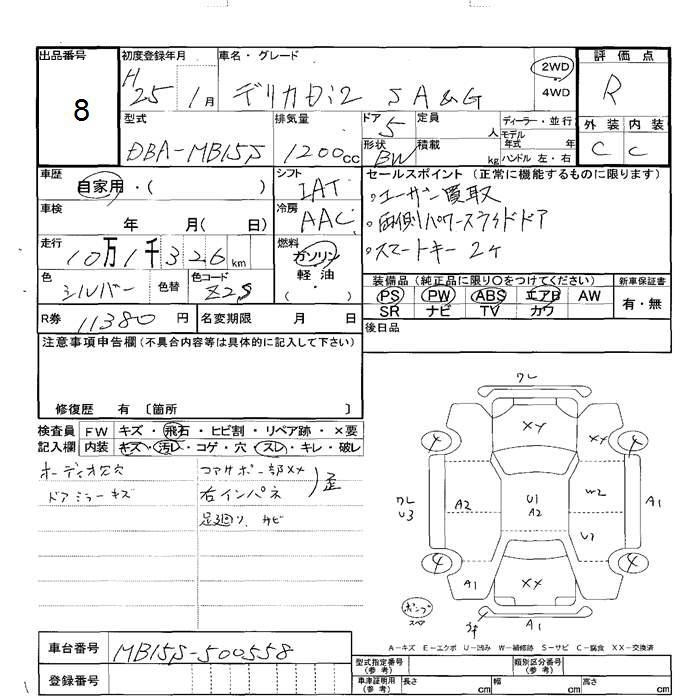 出品番号 初度登録年月 車名・グレード 2WD 4WD 評価点
8 H25 1月 デリカD:2 S A&G R
型式 排気量 ドア 定員 ディーラー・並行 外装 内装
DBA-MB15S 1200cc 5 人 モデル年式 年 C C
形状 積載 ハンドル 左・右
BW kg
車歴 シフト セールスポイント (正常に機能するものに限ります)
自家用・( ) IAT 。ユーザー買取
車検 冷房 。両側パワースライドドア
年 月( 日) AAC 。スマートキー2ヶ
走行 燃料
10万1千326km ガソリン
軽油
( ・ )
色 色替 色コード 装備品 (純正品に限り○をつけてください) 新車保証書
シルバー Z2S PS PW ABS エアB AW 有・無
SR ナビ TV カワ
R券 11380円 名変期限 月 日 後日品
注意事項申告欄 (不具合内容等は具体的に記入して下さい)
修復歴 有 〔箇所 〕
検査員 FW キズ・飛石・ヒビ割・リペア跡・×要
記入欄 内装 キズ・汚レ・コゲ・穴・スレ・キレ・破レ
オーディオ欠穴 コアサポー部XX
ドアミラーキズ 右インパネ 歪
足廻り、サビ
ワレ
XY
4 XX 4
ワレ
U3 A2 U1 A2 W2 A1
U2
4 A1 XX 4
ポンプ スペア A1
A-キズ E-エクボ U-凹み W-補修跡 S-サビ C-腐食 XX-交換済
車台番号 MB15S-500558
登録番号
型式指定番号(参考) 類別区分番号(参考)
車庫証明用(参考) 長さ cm 幅 cm 高さ cm